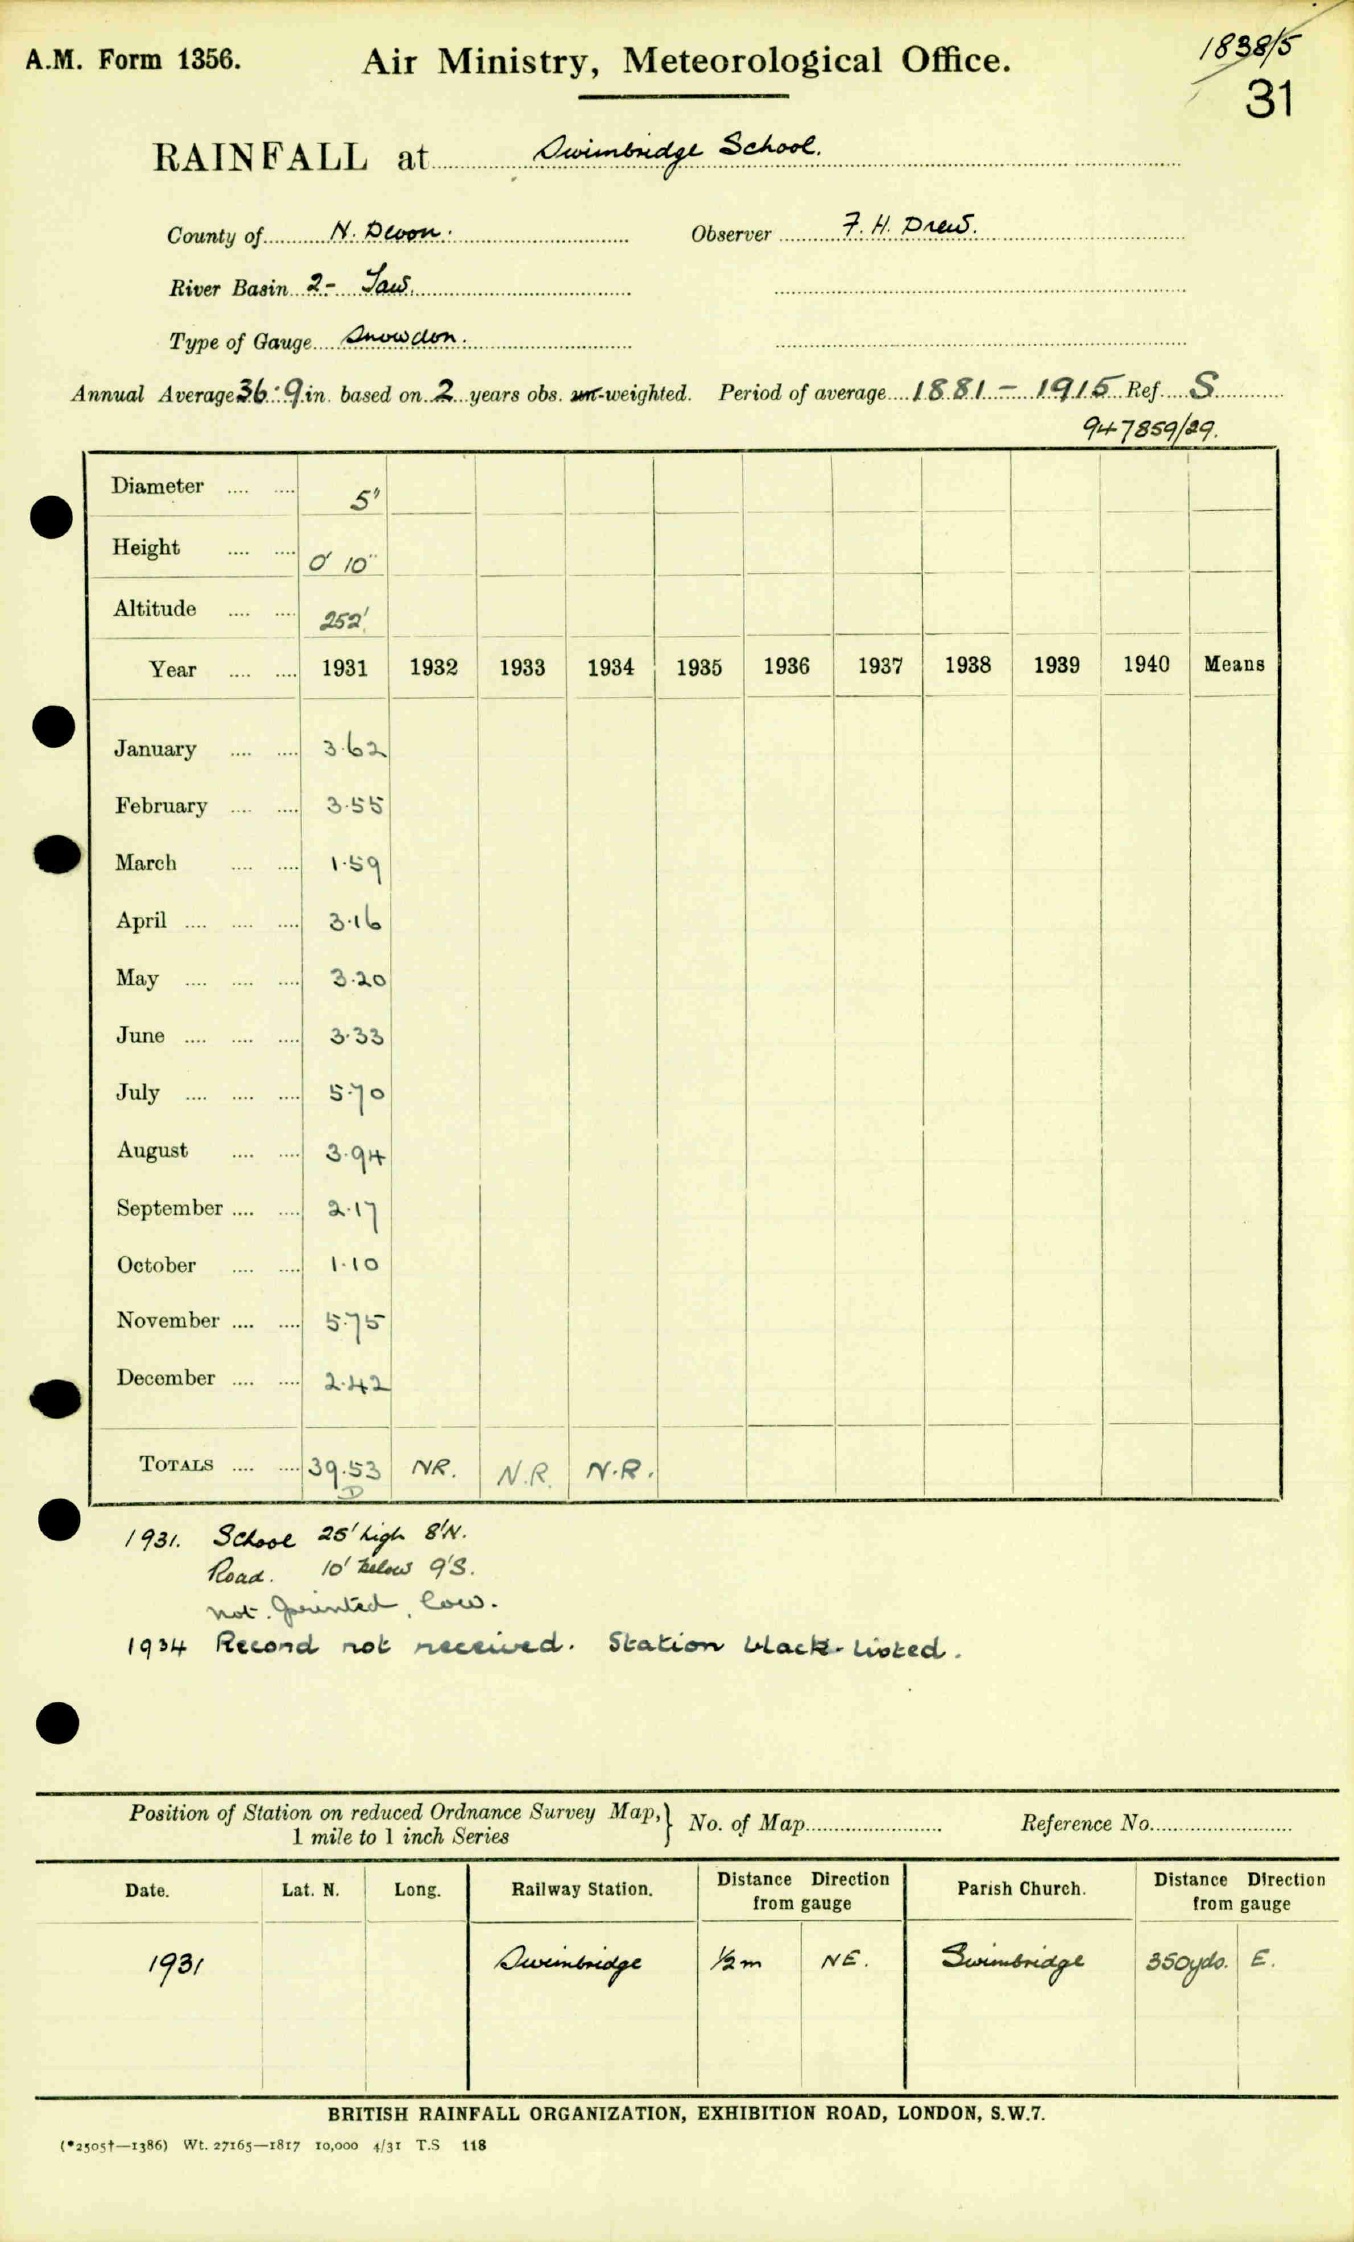 A.M. Form 1356.
Air Ministry, Meteorological Office.
1838/5
31
RAINFALL at Swimbridge School.
County of N. Devon. Observer F. H. Drew.
River Basin 2- Taw.
Type of Gauge Snowdon.
Annual Average 36.9 in. based on 2 years obs. un-weighted. Period of average 1881 - 1915 Ref. S
947859/29.
Diameter .... .... 5"
Height .... .... 0' 10"
Altitude .... .... 252'
Year .... .... 1931 1932 1933 1934 1935 1936 1937 1938 1939 1940 Means
January .... .... 3.62
February .... .... 3.55
March .... .... 1.59
April .... .... .... 3.16
May .... .... .... 3.20
June .... .... .... 3.33
July .... .... .... 5.70
August .... .... 3.94
September .... .... 2.17
October .... .... 1.10
November .... .... 5.75
December .... .... 2.42
TOTALS .... .... 39.53 NR. N.R. N.R.
D
1931. School 25' high 8'N.
Road. 10' below 9'S.
not printed, low.
1934 Record not received. Station black-listed.
Position of Station on reduced Ordnance Survey Map, } No. of Map Reference No.
1 mile to 1 inch Series
Date. Lat. N. Long. Railway Station. Distance Direction from gauge Parish Church. Distance Direction from gauge
1931 Swimbridge ½m NE. Swimbridge 350yds. E.
BRITISH RAINFALL ORGANIZATION, EXHIBITION ROAD, LONDON, S.W.7.
(*2505†—1386) Wt. 27165—1817 10,000 4/31 T.S 118